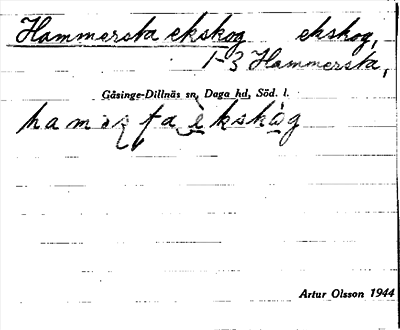 Hammersta ekskog ekskog,
1-3 Hammersta,
Gåsinge-Dillnäs sn, Daga hd, Söd. l.
ekskòg
Artur Olsson 1944